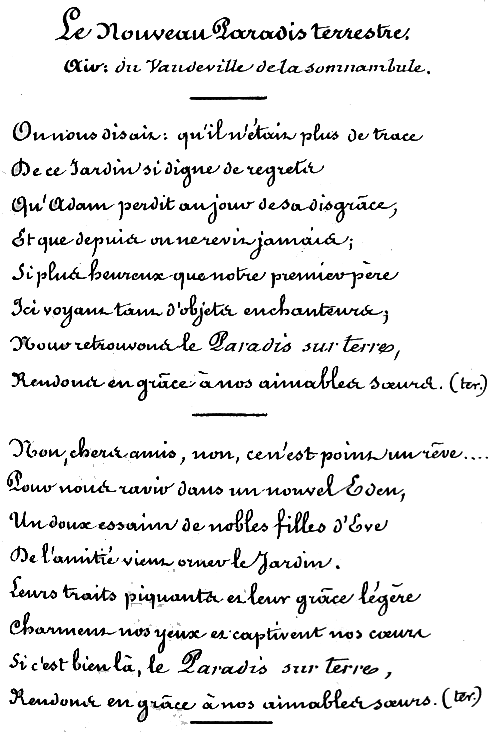 Le Nouveau Paradis terrestre.
Air: du Vaudeville de la somnambule.
On nous disait: qu'il n'était plus de trace
De ce Jardin si digne de regrets
Qu'Adam perdit au jour de sa disgrâce,
Et que depuis on ne revit jamais;
Si plus heureux que notre premier père
Ici voyant tant d'objets enchanteurs,
Nous retrouvons le Paradis sur terre,
Rendons en grâce à nos aimables sœurs. (ter.)
Non, chers amis, non, ce n'est point un rêve....
Pour nous ravir dans un nouvel Eden,
Un doux essaim de nobles filles d'Eve
De l'amitié vient orner le Jardin.
Leurs traits piquants et leur grâce légère
Charment nos yeux et captivent nos cœurs
Si c'est bien là, le Paradis sur terre,
Rendons en grâce à nos aimables sœurs. (ter.)